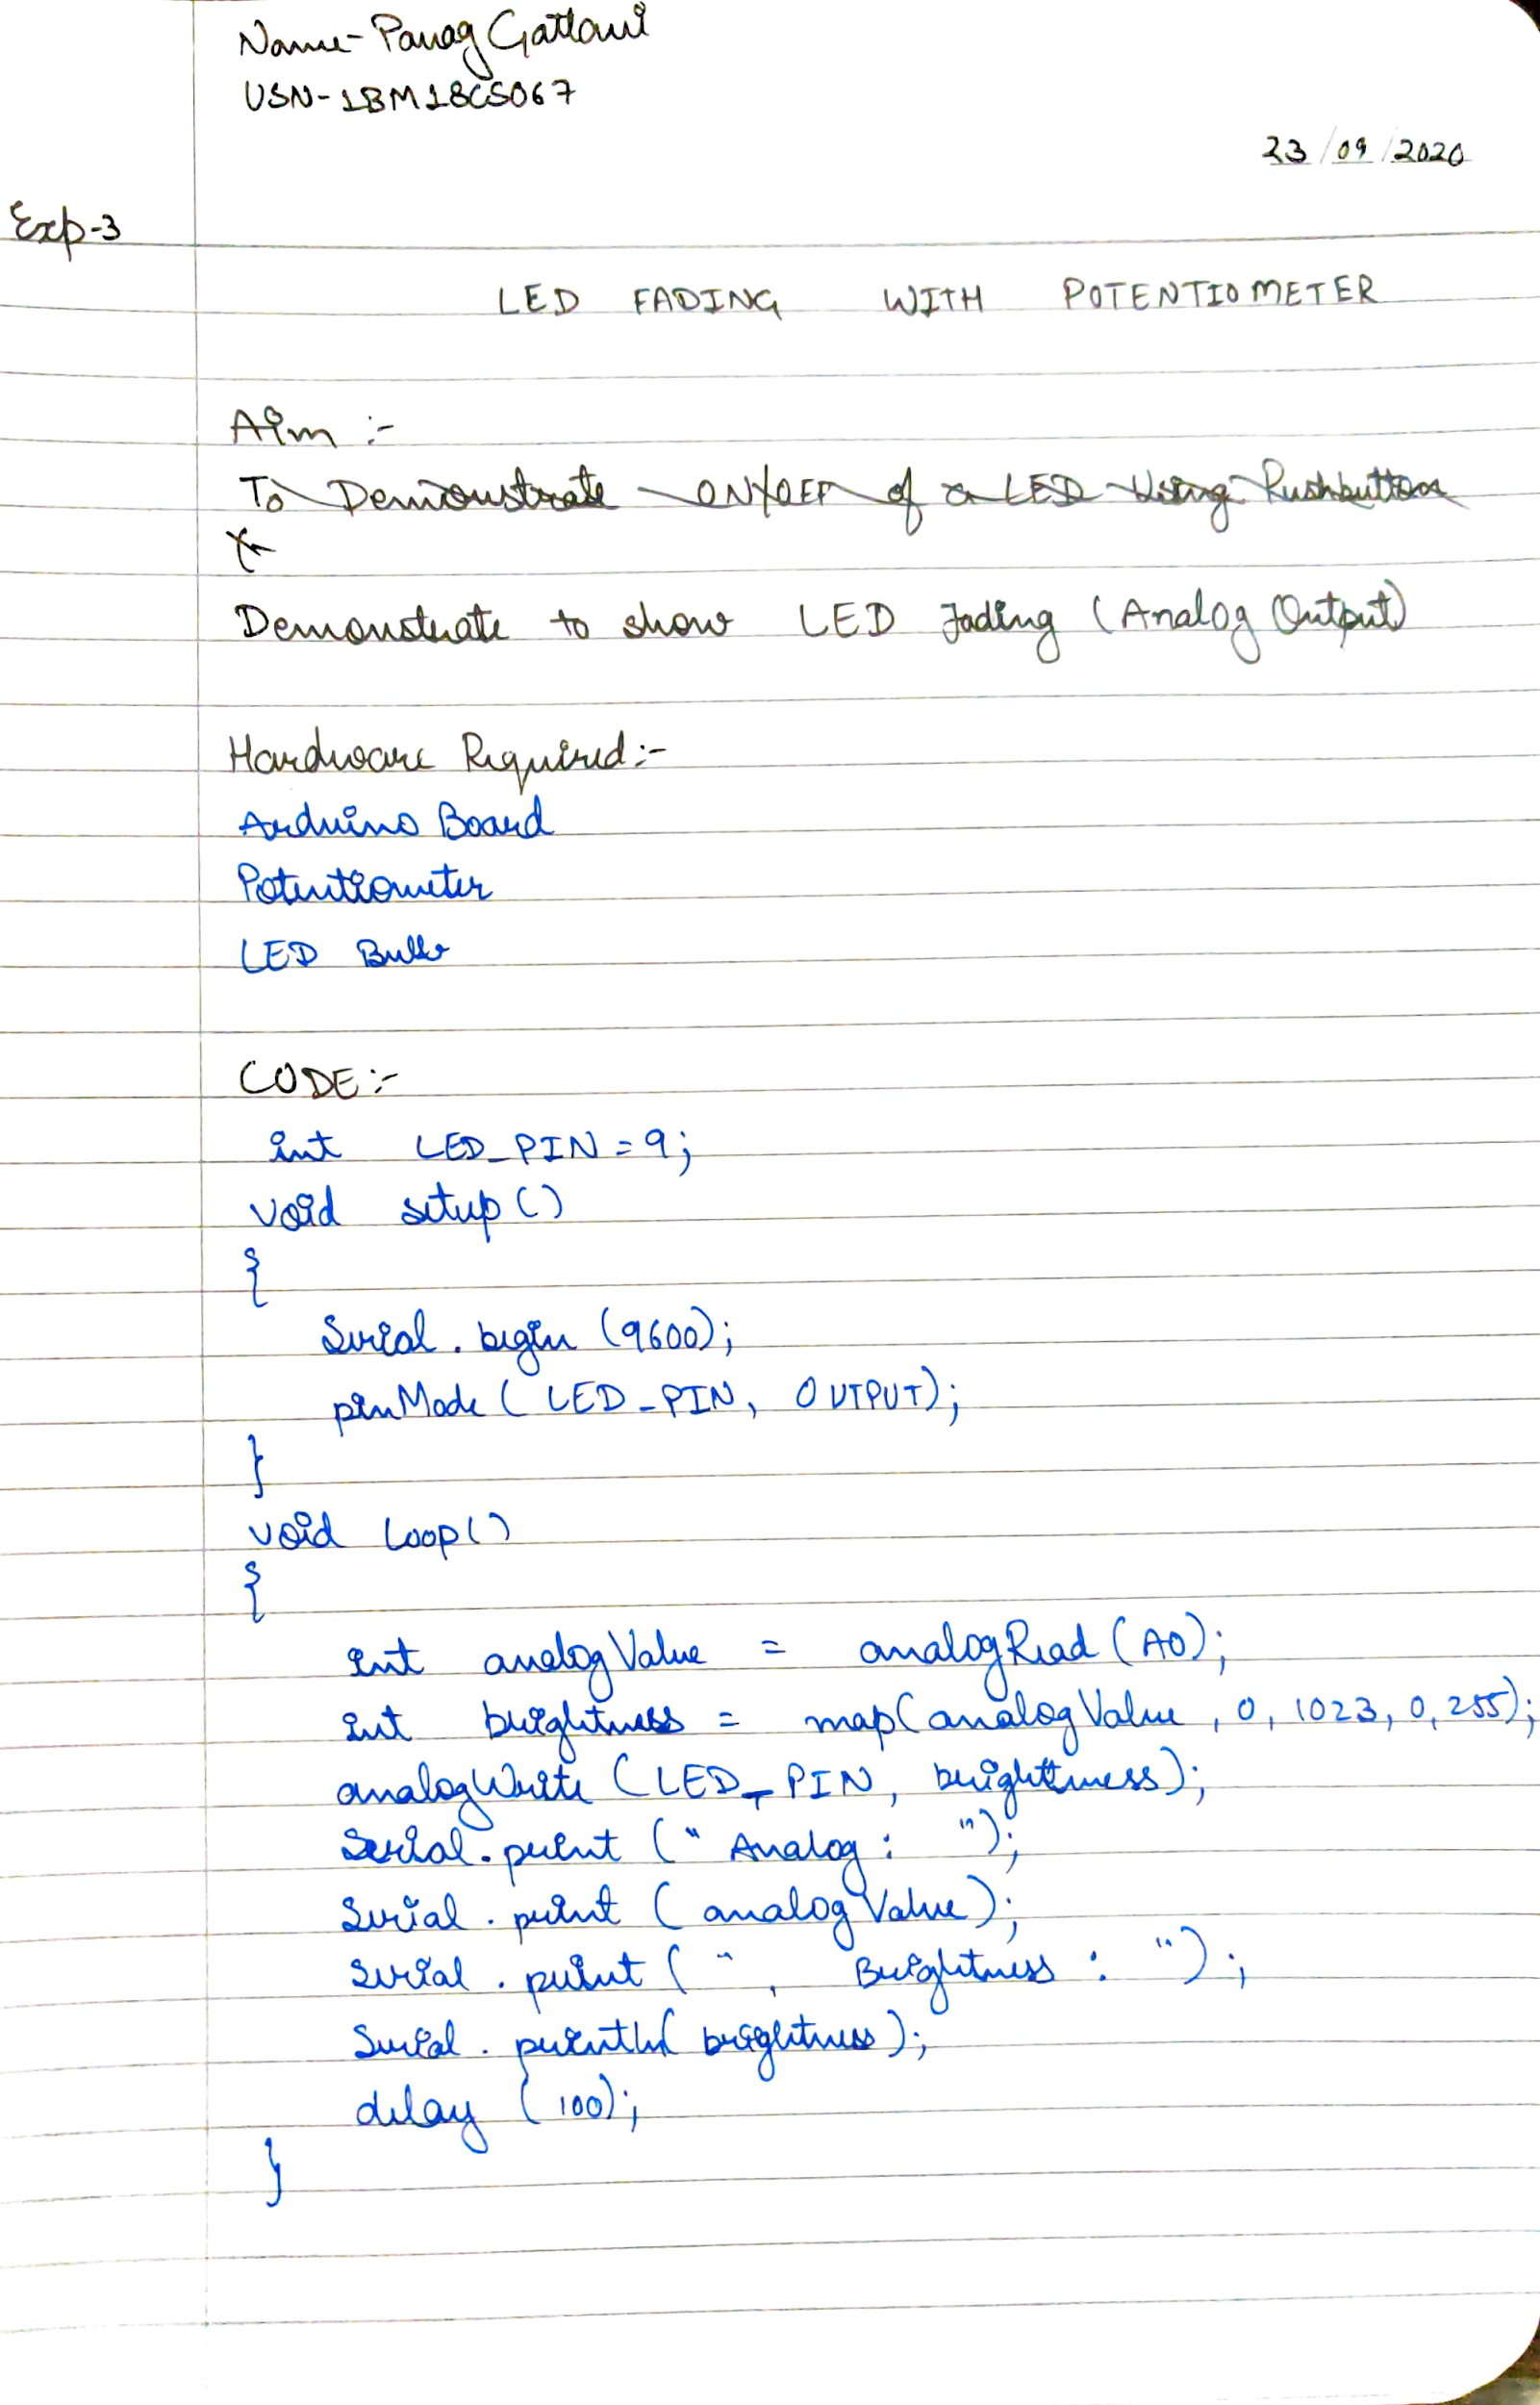 Name- Parag Gattani
USN- 1BM18CS067
23/09/2020
Exp-3
LED FADING WITH POTENTIOMETER
Aim :-
To Demonstrate ON/OFF of a LED Using Pushbutton
Demonstrate to show LED Fading (Analog Output)
Hardware Required:-
Arduino Board
Potentiometer
LED Bulb
CODE:-
int LED_PIN = 9;
void setup()
{
Serial.begin (9600);
pinMode ( LED_PIN, OUTPUT);
}
void loop()
{
int analogValue = analogRead (A0);
int brightness = map( analogValue, 0, 1023, 0, 255);
analogWrite (LED_PIN, brighttness);
Serial.print (" Analog: ");
Serial.print ( analogValue);
Serial.print ( ", Brightness : ");
Serial.println( brightness);
delay (100);
}